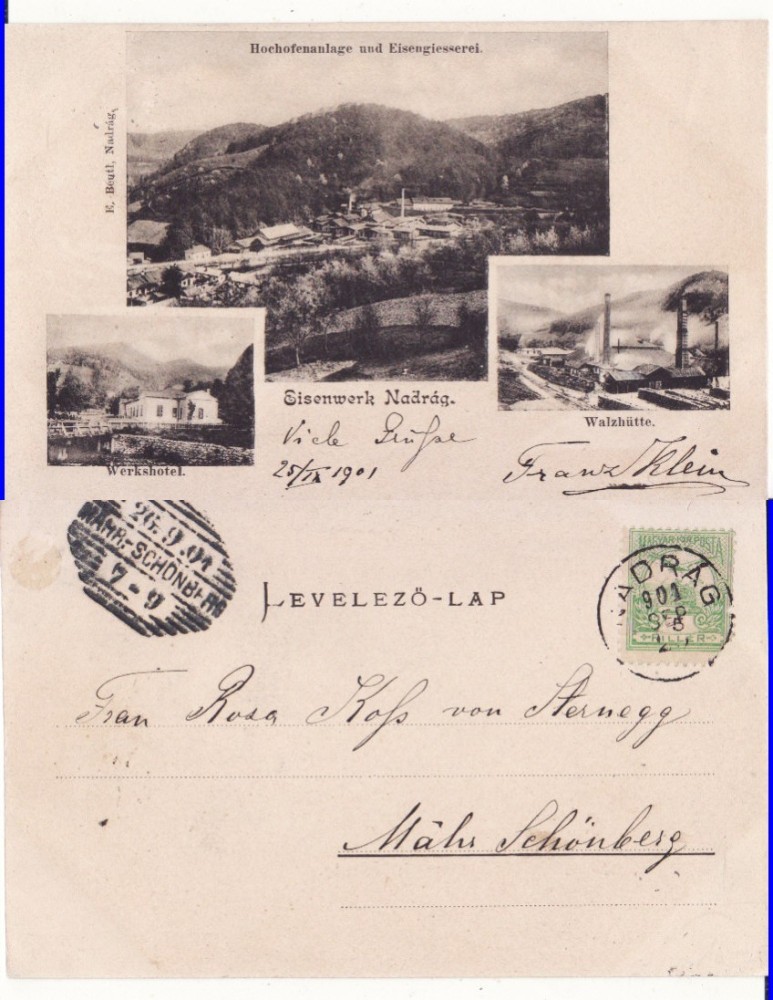 Hochofenanlage und Eisengiesserei.
E. Beutl, Nadrág.
Eisenwerk Nadrág.
Walzhütte.
Werkshotel.
Viele Grüße
25/IX 1901
Franz Klein
26.9.01
MÄHR.-SCHÖNBERG
7-9
LEVELEZŐ-LAP
MAGYAR·KIR·POSTA
FILLER
NADRÁG
901
SEP
25
Frau Rosa Koß von Sternegg
Mähr Schönberg